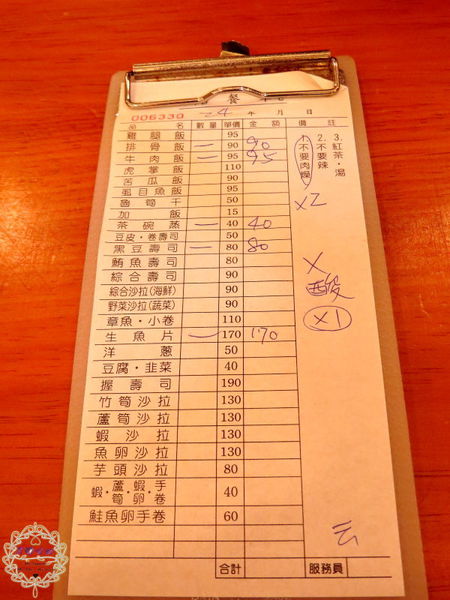 餐
006330 年 月 日
品 名 數量 單價 金額 備註
雞腿飯 95
排骨飯 一 90 90
牛肉飯 一 95 95
虎掌飯 110
苦瓜飯 90
虱目魚飯 95
魯筍干 50
加飯 15
茶碗蒸 一 40 40
豆皮·卷壽司 50
黑豆壽司 一 80 80
鮪魚壽司 80
綜合壽司 90
綜合沙拉(海鮮) 90
野菜沙拉(蔬菜) 90
草魚·小卷 110
生魚片 一 170 170
洋蔥 50
豆腐·韭菜 40
握壽司 190
竹筍沙拉 130
蘆筍沙拉 130
蝦沙拉 130
魚卵沙拉 130
芋頭沙拉 80
蝦·蘆筍·蝦卵·手卷 40
鮭魚卵手卷 60
合計 服務員
3.紅茶·湯
2.不要辣
1.不要肉燥
X2
X
酸
X1